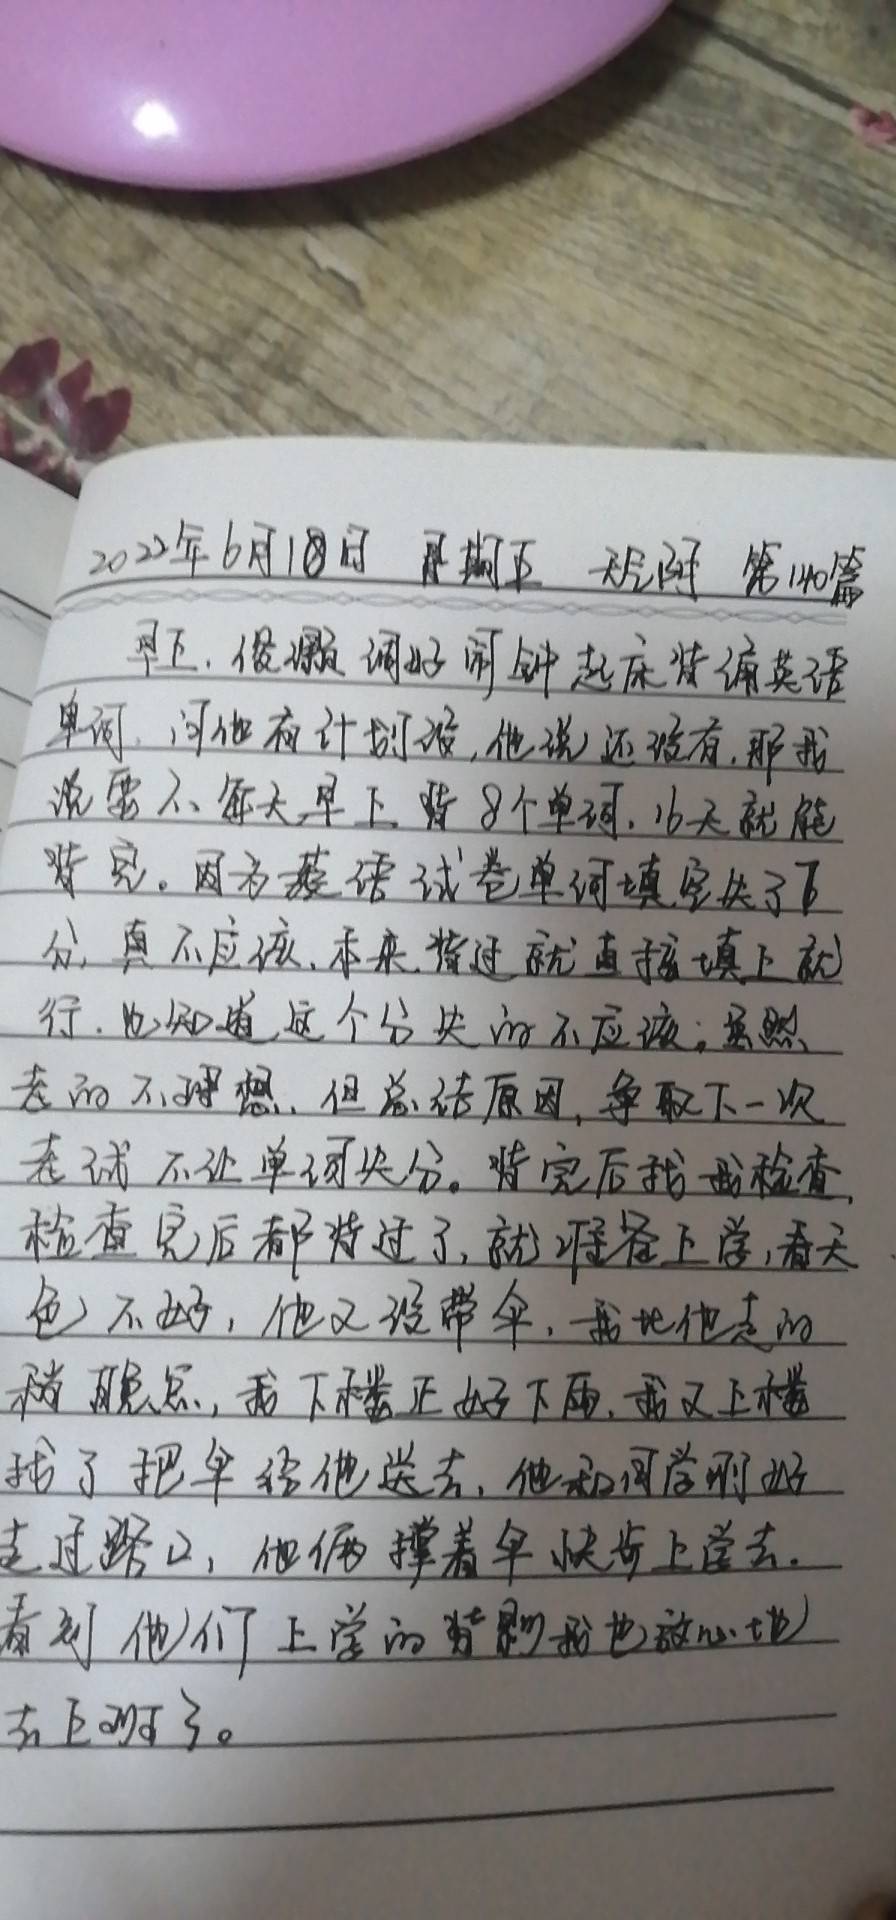 2022年6月18日 星期五 天气阴 第140篇
早上,俊灏调好闹钟起床背诵英语
单词,问他有计划没,他说还没有,那我
说要不每天早上背8个单词,16天就能
背完。因为英语试卷单词填空失了6
分,真不应该,本来背过就直接填上就
行,也知道这个分失的不应该;虽然
考的不理想,但总结原因,争取下一次
考试不让单词失分。背完后找我检查,
检查完后都背过了,就准备上学,看天
色不好,他又没带伞,我比他走的
稍晚点,我下楼正好下雨,我又上楼
找了把伞给他送去,他和同学刚好
走过路口,他俩撑着伞快步上学去.
看到他们上学的背影我也放心地
去上班了。